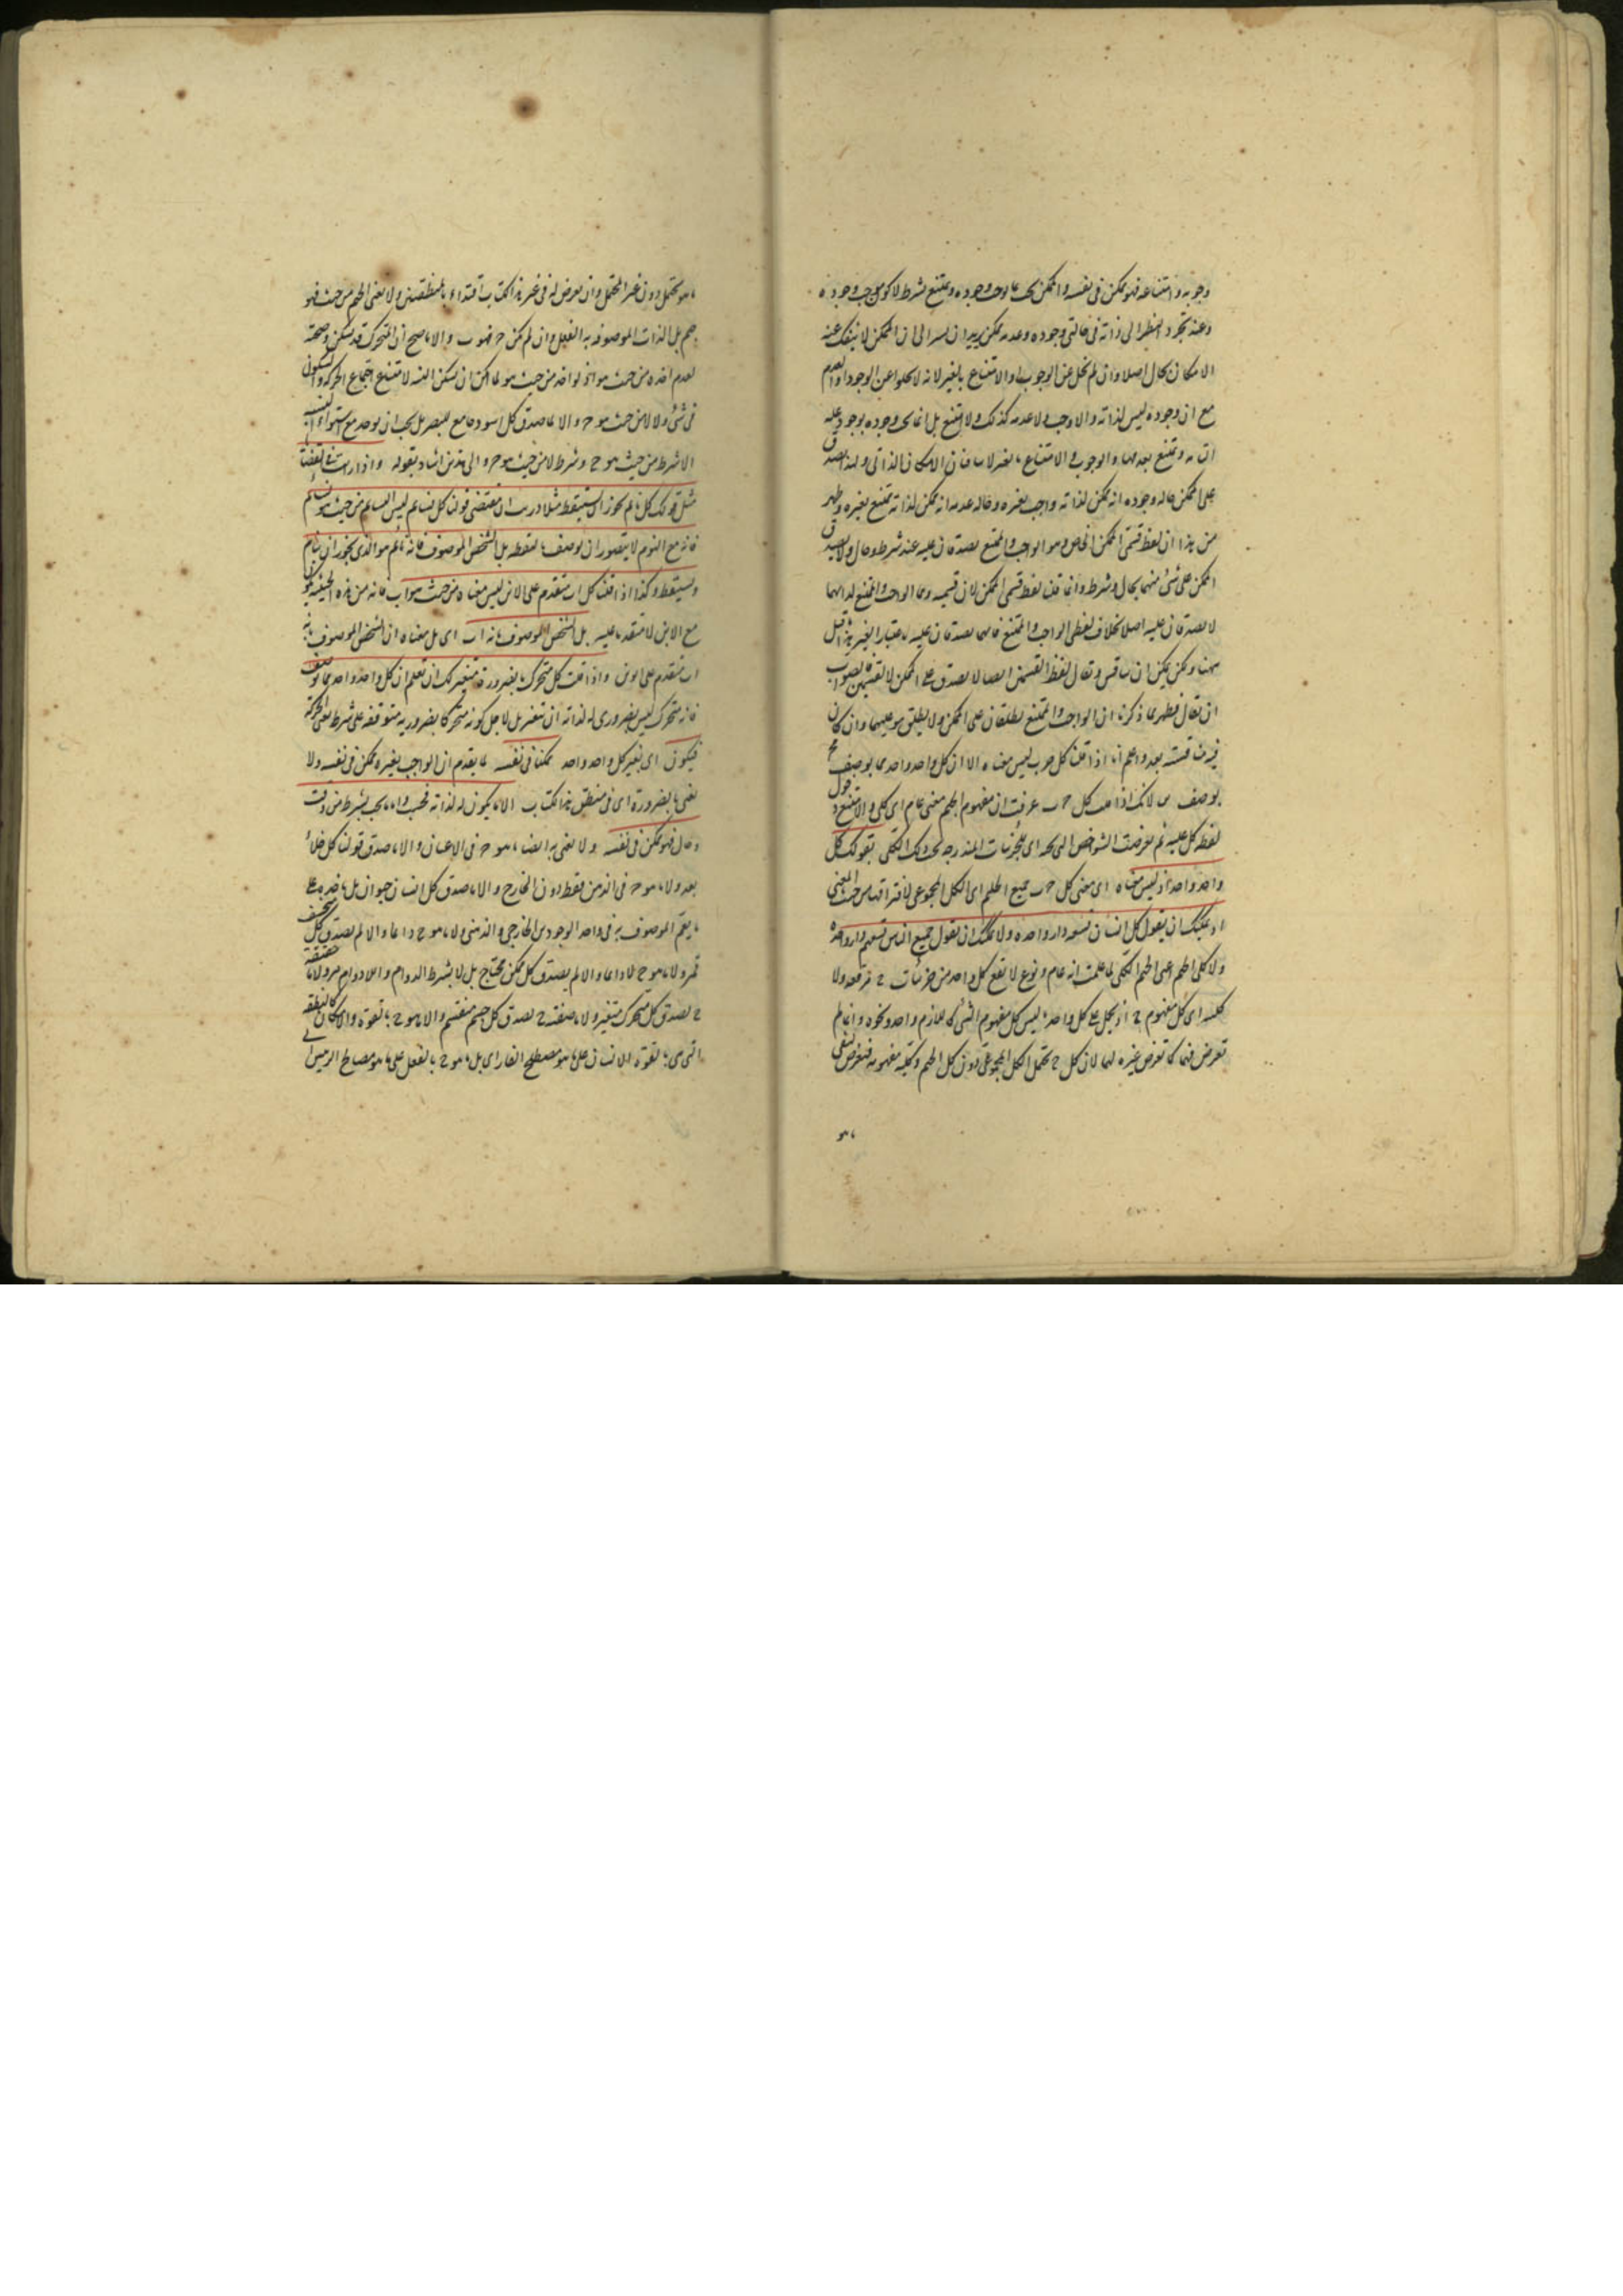 وجوبه وامتناعه فهو ممكن فى نفسه والممكن يجب بما يوجب وجوده ويمتنع بشرط لا كون موجب وجوده
وعند تجرد النظر الى ذاته فى حالتى وجوده وعدمه ممكن يريد ان يشير الى ان الممكن لا ينفك عنه
الامكان بحال اصلا وان لم يخل عن الوجوب او الامتناع بالغير لانه لا يخلوا عن الوجود او العدم
مع ان وجوده ليس لذاته والا وجب ولا عدمه كذلك والا امتنع بل انما يجب وجوده بوجود علته
التامة ويمتنع بعدمها والوجوب والامتناع بالغير لا ينافيان الامكان الذاتى ولهذا يصدق
على الممكن حالة وجوده انه ممكن لذاته واجب بغيره وحالة عدمه انه ممكن لذاته ممتنع بغيره وظهر
من هذا ان لفظ قسمى الممكن الخاص وهو الواجب والممتنع يصدقان عليه عند شرط وحال ولا يصدق
الممكن على شئ منهما بحال وشرط وانما قلنا لفظ قسمى الممكن لان قسيميه وهما الواجب والممتنع لذاتهما
لا يصدقان عليه اصلا بخلاف لفظى الواجب والممتنع فانهما يصدقان عليه باعتبار الغير هذا قيل
ههنا ولكن يمكن ان يناقش ويقال لفظ القسمين ايضا لا يصدق على الممكن لا لقسمين والصواب
ان يقال فظهر مما ذكرنا ان الواجب والممتنع يطلقان على الممكن ولا يطلق هو عليهما وان كان
فيه مناقشة بعد واعلم انا اذا قلنا كل ج ب ليس معناه الا ان كل واحد واحد مما يوصف بج
يوصف ب لانك اذا قلت كل ج ب عرفت ان مفهوم الجيم معنى عام اى كلى والا امتنع دخول
لفظة كل عليه ثم تعرضت الشواخص التى تحته اى للجزئيات المندرجة تحت ذلك الكلى بقولك كل
واحد واحد اذ ليس معناه اى معنى كل ج ب جميع الجيم اى الكل المجموعى لافتراقهما من حيث المعنى
اذ يمكنك ان تقول كل انسان تسعه دار واحدة ولا يمكنك ان تقول جميع الناس تسعهم دار واحدة
ولا كلى الجيم اعنى الجيم الكلى لما علمت انه عام ونوع لا يقع كل واحد من جزئيات ج موقعه ولا
كليته اى كل مفهوم ج اذ يحمل على كل واحد ما ليس كل مفهوم الشئ كاللازم واحد ونحوه وانما لم
تعرض فيما كما تعرض غيره لهما لان كل ج يحتمل الكل المجموعى دون كل الجيم وكلية مفهومه فتعرض لنفى
ما هو
ما هو يحتمل دون غير المحتمل وان تعرض له فى غير هذا الكتاب اقتداء بالمنطقيين ولا نعنى الجيم من حيث هو
جيم بل الذات الموصوفة به بالفعل وان لم يكن ج فهو ب والا ما صح ان المتحرك قد يسكن وصحته
لعدم اخذه من حيث هو اذ لو اخذ من حيث هو لما امكن ان يسكن البتة لامتناع اجتماع الحركة والسكون
فى شئ ولا لا من حيث هو ج والا لما صدق كل اسود جامع للبصر بل يجب ان يوخذ مع استواء النسبة
الا شرط من حيث هو ج وشرط لا من حيث هو ج والى هذين اشار بقوله واذا ربت فى لفظنا
مثل قولك كل نائم يجوز ان يستيقظ مثلا دريت ان مقتضى قولنا كل نائم ليس النائم من حيث هو نائم
فانه مع النوم لا يتصور ان يوصف باليقظة بل الشخص الموصوف فانه نائم هو الذى يجوز ان ينام
ويستيقظ وكذا اذا قلنا كل اب متقدم على الابن ليس معناه من حيث هو اب فانه من هذه الحيثية يكون
مع الابن لا متقدما عليه بل الشخص الموصوف بانه اب اى بل معناه ان الشخص الموصوف بانه
اب متقدم على الابن واذا قلت كل متحرك بالضرورة متغير لك ان تعلم ان كل واحد واحد مما يوصف
فانه متحرك ليس بضرورى له لذاته ان يتغير بل لاجل كونه متحركا فضروريته متوقفة على شرط اعنى الحركة
فيكون اى تغير كل واحد واحد ممكنا فى نفسه لما تقدم ان الواجب بغيره ممكن فى نفسه ولا
نعنى بالضرورة اى فى منطق هذا الكتاب الا ما يكون له لذاته فحسب واما ما يجب بشرط من وقت
وحال فهو ممكن فى نفسه ولا نعنى به ايضا ما هو ج فى الاعيان والا ما صدق قولنا كل خلاء
بعد ولا ما هو ج فى الذهن فقط دون الخارج والا ما صدق كل انسان حيوان بل ناخذه على
ما يعم الموصوف به فى واحد الوجودين الخارجى والذهنى ولا ما هو ج دائما والا لم يصدق كل منخسف
قمر ولا ما هو ج لا دائما والا لم يصدق كل ممكن محتاج بل لا بشرط الدوام واللادوام مرة ولا ما حقيقته
ج ليصدق كل متحرك متغير ولا ما صفته ج ليصدق كل جسم منقسم ولا ما هو ج بالقوة والا كان كالنطفة
التى هى بالقوة الانسان على ما هو مصطلح الفارابى بل ما هو ج بالفعل على ما هو مصطلح الرئيس ابى